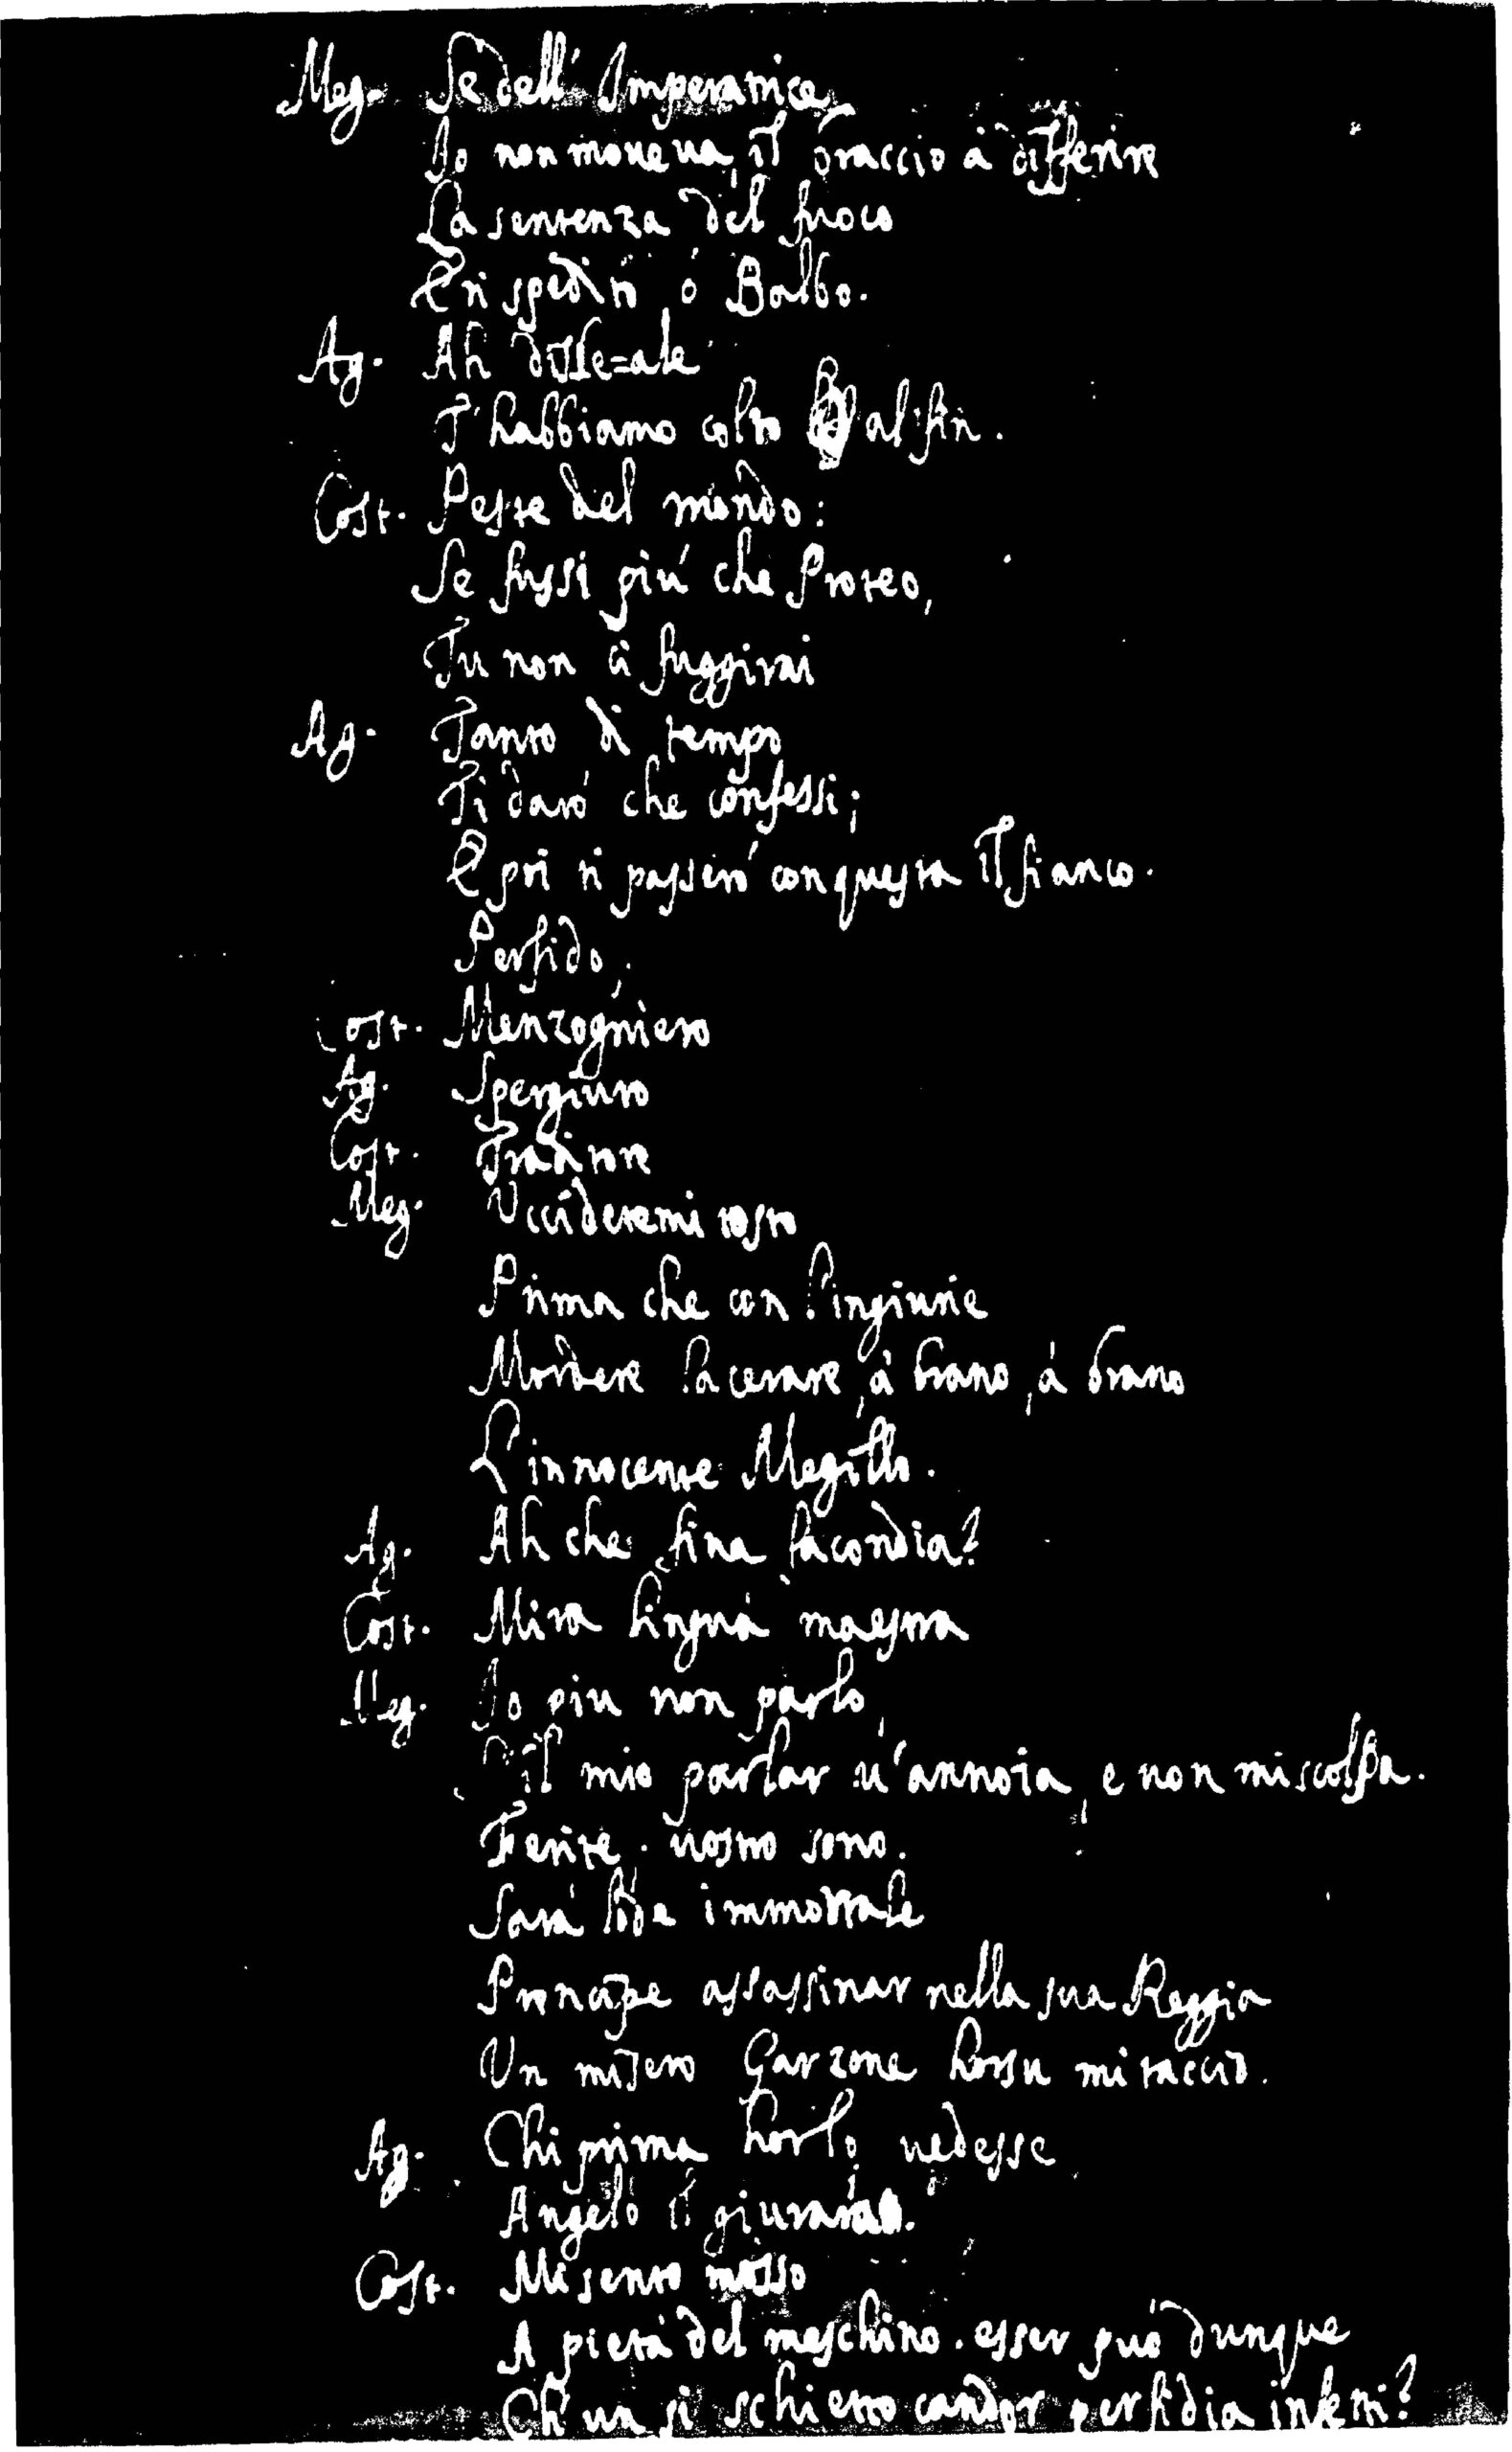 Meg. Se dell' Imperatrice
Io non moueua, il braccio à differire
La sentenza del fuoco
E ti spediti ó Balbo.
Ag. Ah disle=ale
T'habbiamo colto al fin.
Cost. Peste del mondo:
Se fussi piú che Proteo,
Tu non ci fuggirai
Ag. Tanto di tempo
Ti daró che confessi;
E poi ti passeró con questa il fianco.
Perfido,
Cost. Menzogniero
Ag. Spergiuro
Cost. Traditore
Meg. Vccidetemi tosto
Prima che con l'ingiurie
Mordere lacerare, à brano, à brano
L'innocente Megillo.
Ag. Ah che fina facondia?
Cost. Mira lingua maestra
Meg. Io piu non parlo,
S'il mio parlar u'annoia, e non mi scolpa.
Ferite. uostro sono.
Sará lode immortale
Prencipe assassinar nella sua Reggia
Un misero Garzone horsu mi taccio.
Ag. Chi prima hor lo uedesse
Angelo il giurará.
Cost. Mi sento mosso
A pietá del meschino. esser puó dunque
Ch'un si schietto candor perfidia infetti?